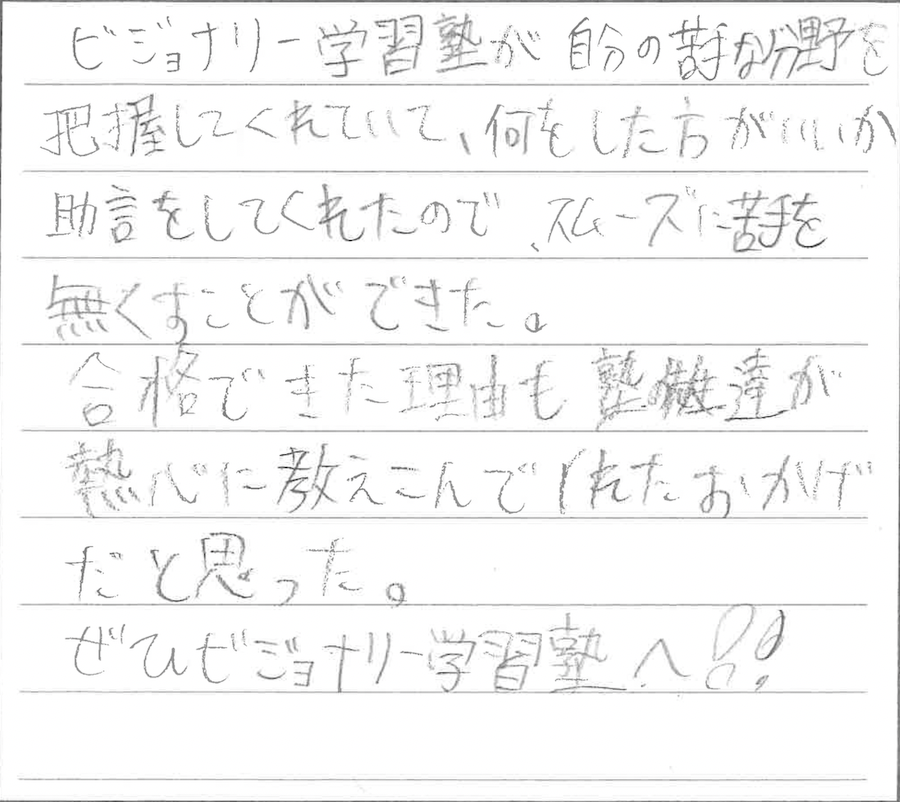 ビジョナリー学習塾が自分の苦手な分野を
把握してくれていて、何をした方がいいか
助言をしてくれたので、スムーズに苦手を
無くすことができた。
合格できた理由も塾の達が
熱心に教えこんでくれたおかげ
だと思った。
ぜひビジョナリー学習塾へ!!